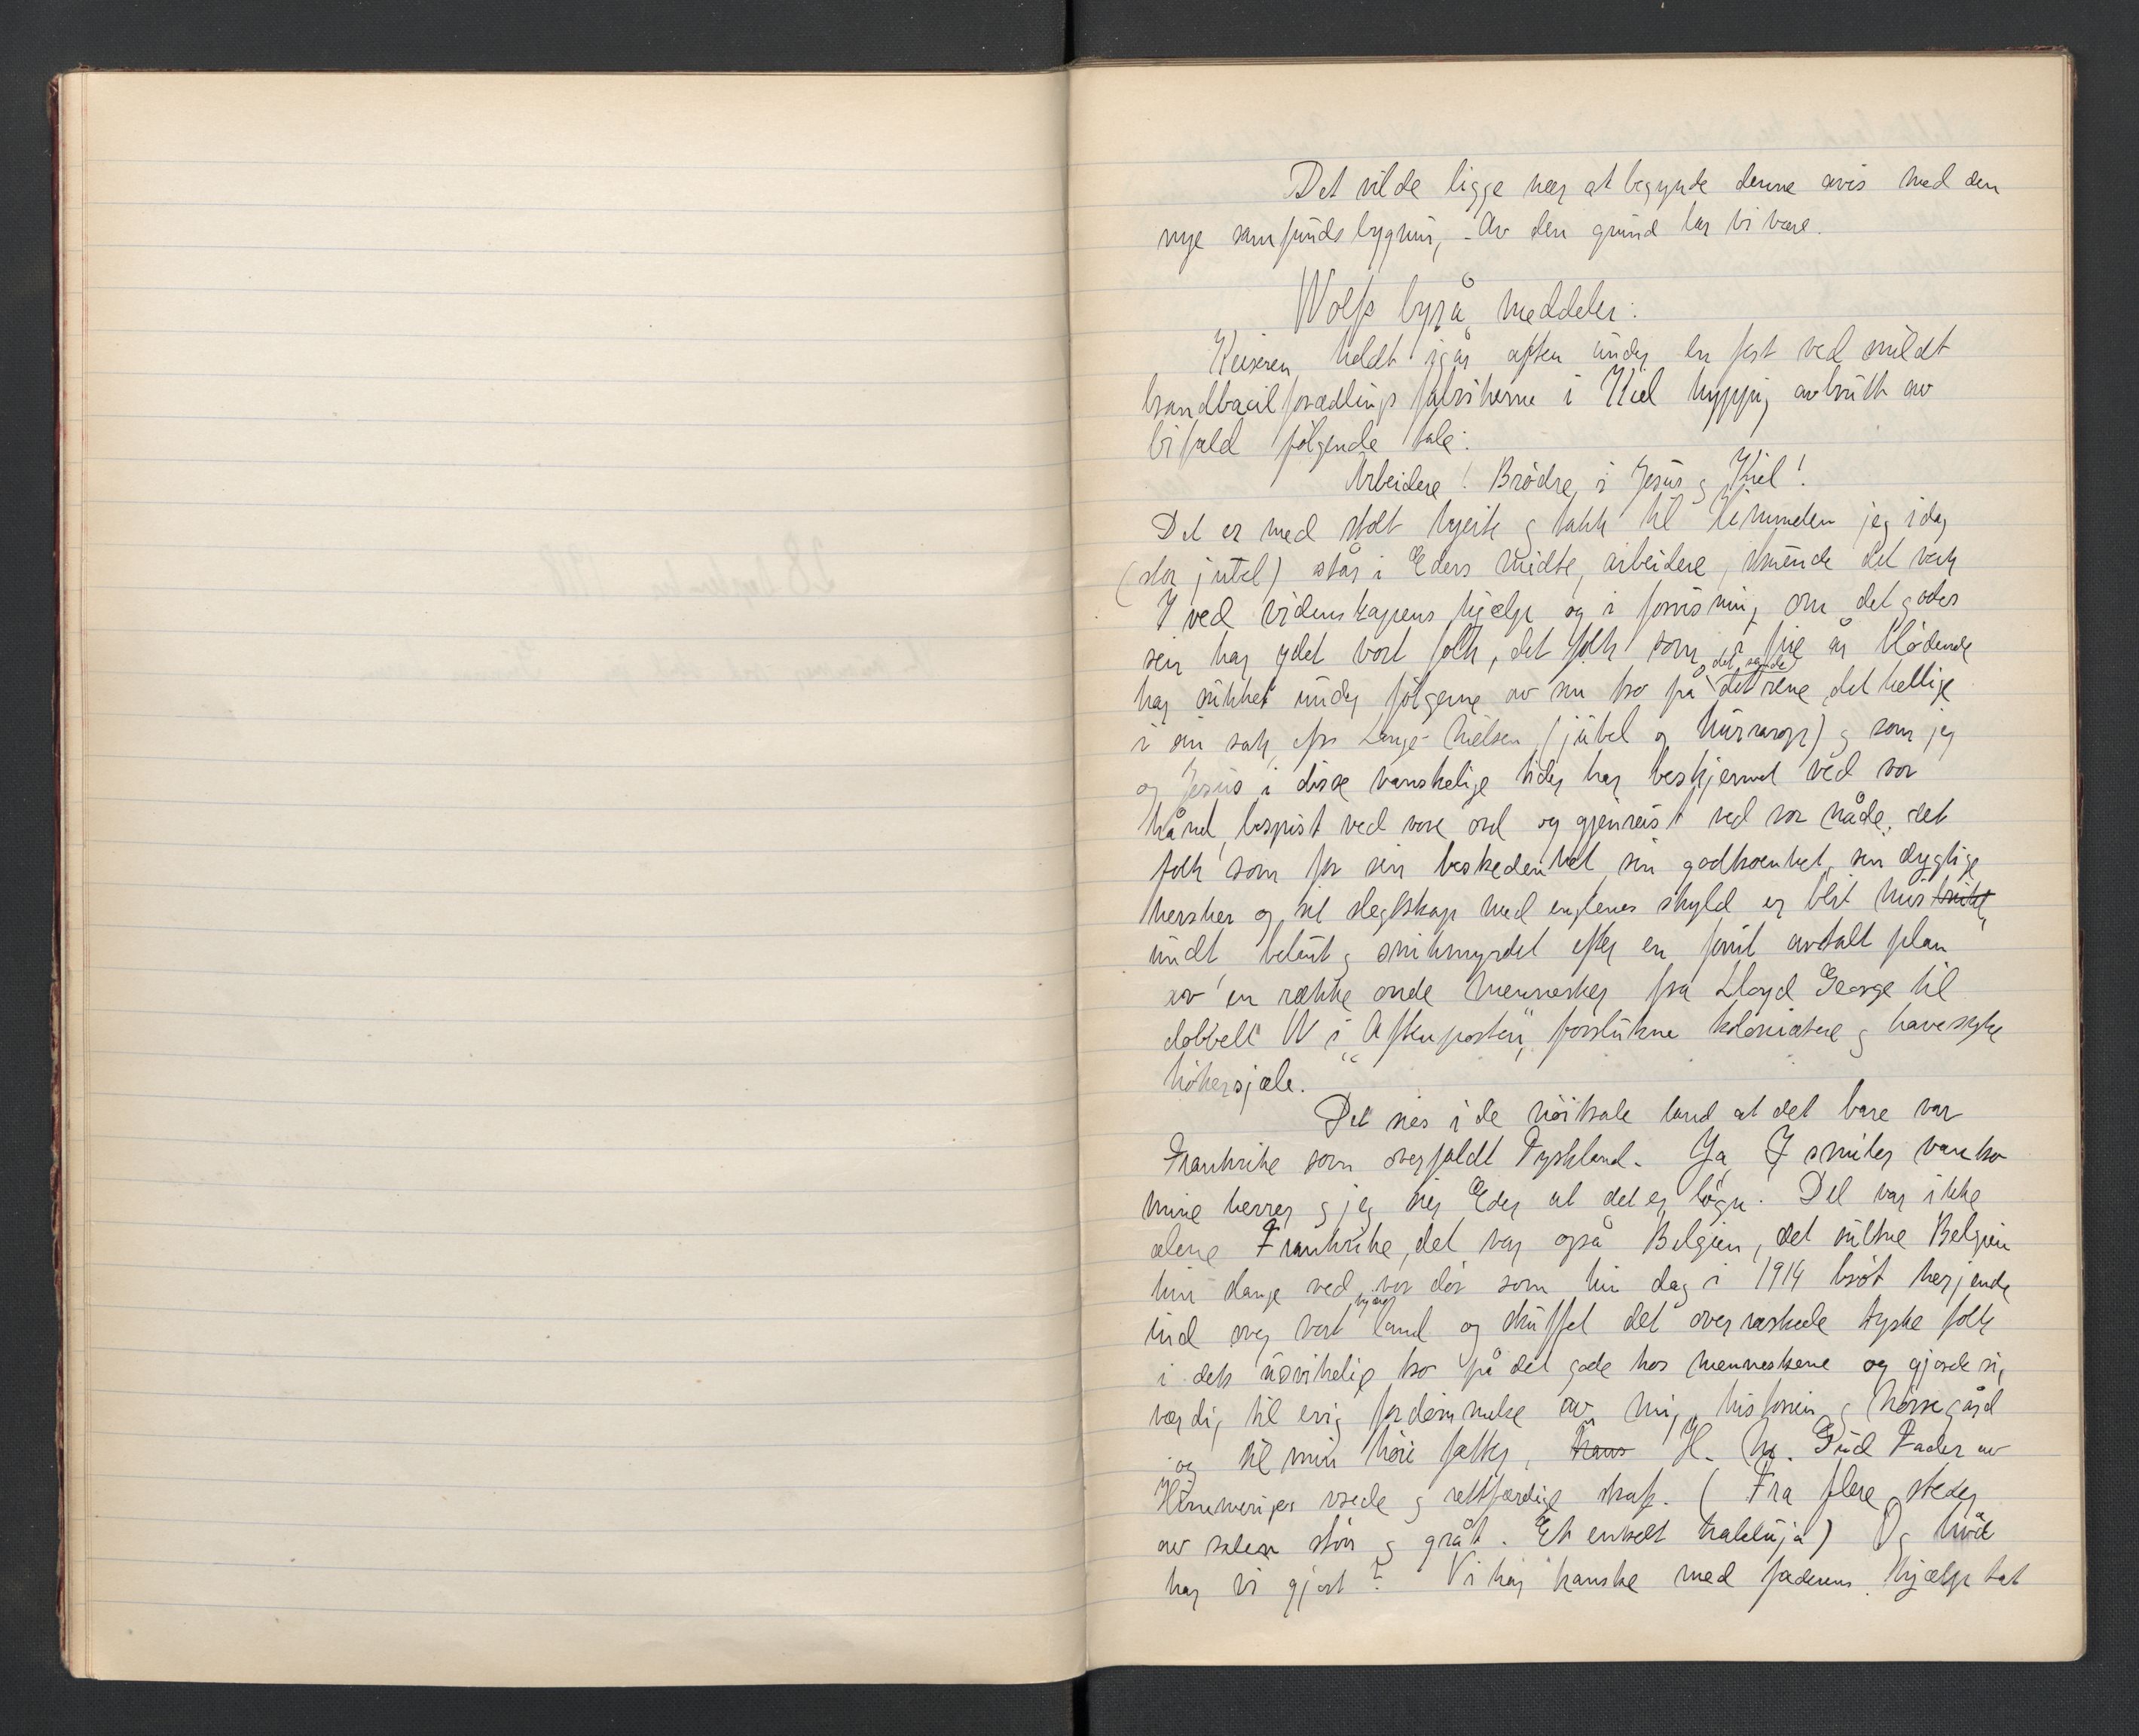 Det vilde ligge nær at begynde denne avis med den
nye samfundsbygning, - Av den grund lar vi være.
Wolfs byrå meddeler:
Keiseren holdt igår aften under en fest ved
fabrikerne i Kiel hyppig avbrutt av
bifald følgende tale:
Arbeidere! Brødre i Jesus og Kiel!
Det er med stolt høihet og takk til Himmelen jeg idag
(stor jubel) står i Eders midte, arbeidere, skuende det verk
I ved videnskapens hjælp og i forvisning om det godes
seir har ydet vort folk, det folk som i fire år blødende
har sukket under følgerne av sin tro på det sande det rene, det hellige
i sin sak, efr Lange-Nielsen, (jubel og hurrarop) og som jeg
og Jesus i disse vanskelige tider har beskjermet ved vor
hånd, bespist ved vore ord og gjenreist ved vor nåde, det
folk som for sin beskedenhet, sin godtroenhet, sin dygtige
hersker og sit slegtskap med englenes skyld er blit mis
undt, belurt og snikmyrdet efter en forut avtalt plan
av en række onde mennesker fra Lloyd George til
dobbelt W i "Aftenposten", forslukne koloniætere og havesyke
høkersjæle.
Det sies i de nøitrale land at det bare var
Frankrike som overfaldt Tyskland. Ja, I smiler vantro
mine herrer og jeg sier Eder at det er løgn. Det var ikke
alene Frankrike, det var også Belgien, det sultne Belgien
hin slange ved vor dør som hin dag i 1914 brøt herjende
ind over vort land og skuffet det overraskede tyske folk
i dets usvikelige tro på det gode hos menneskene og gjorde sig
værdig til evig fordømmelse av mig, historien og Nørregård
og til min høie fatter, H. M. Gud Fader av
Himmeriges vrede og rettfærdige straf. (Fra flere steder
av salen støn og gråt. Et enkelt halleluja) Og hvad
har vi gjort? Vi har kanske med faderens hjælp tat